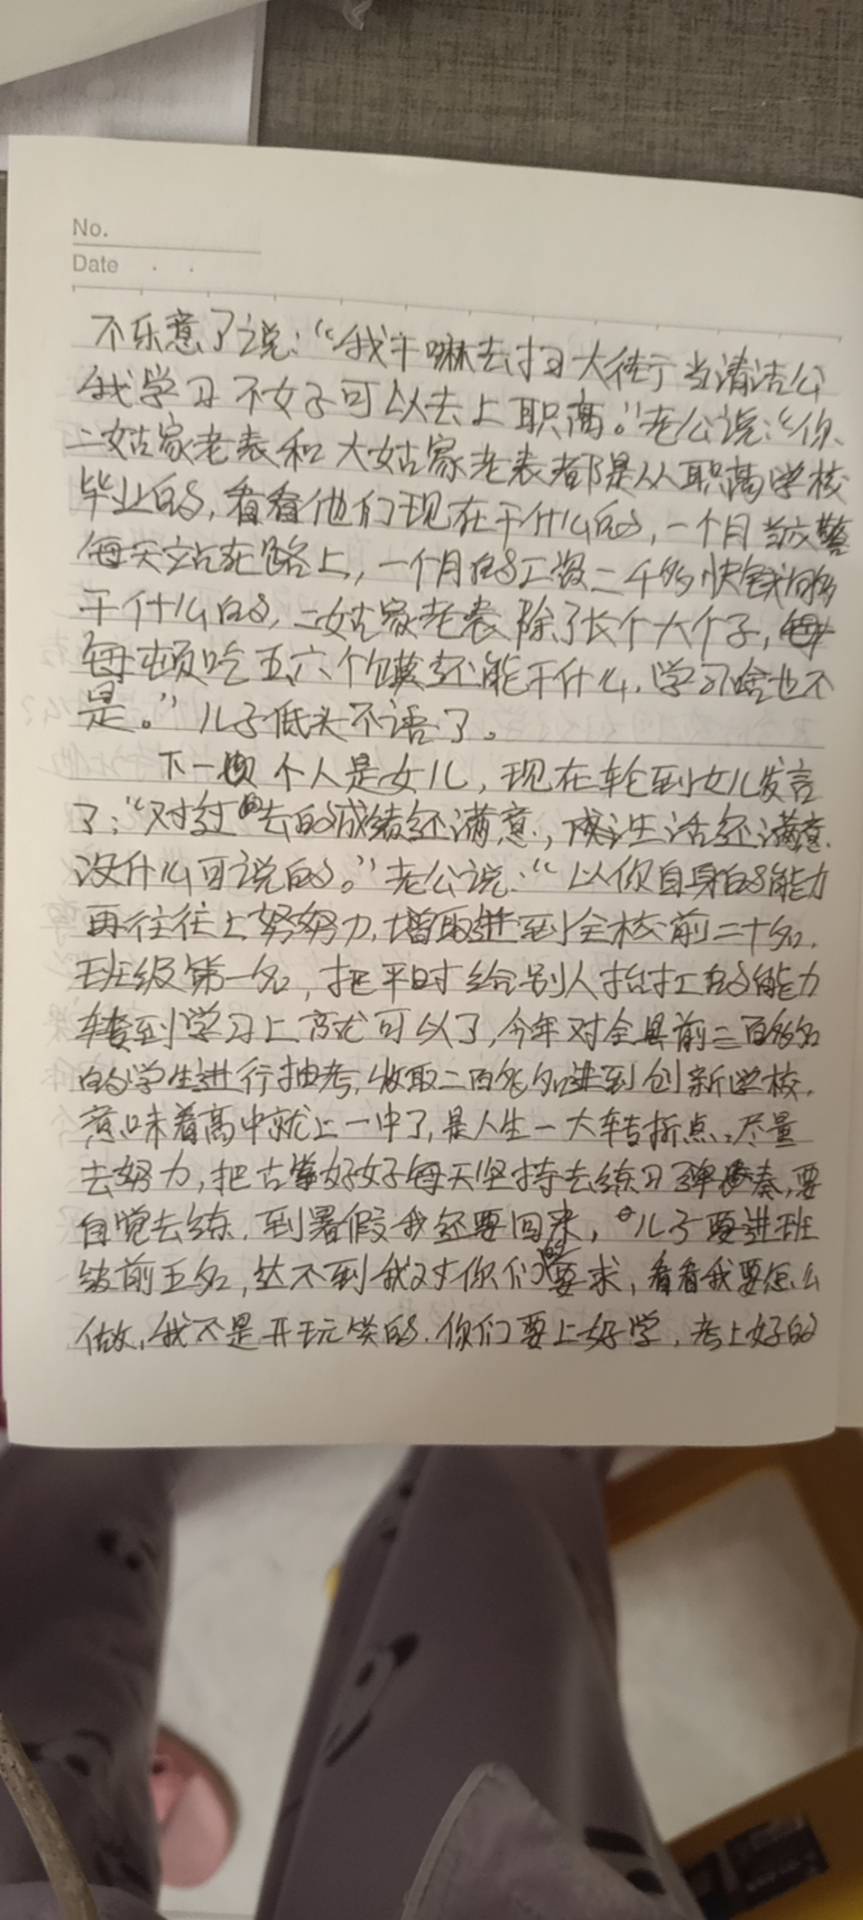 No.
Date
不乐意了说:“我干嘛去扫大街当清洁公
我学习不好可以去上职高。”老公说:“你
二姑家老表和大姑家老表都是从职高学校
毕业的,看看他们现在干什么的,一个月当交警
每天站在路上,一个月的工资二千多块钱够
干什么的,二姑家老表除了长个大个子,
每顿吃五六个馍还能干什么,学习啥也不
是。”儿子低头不语了。
下一个人是女儿,现在轮到女儿发言
了:“对过去的成绩还满意,生活还满意
没什么可说的。”老公说:“以你自身的能力
再往往上努努力,增取进到全校前二十名,
班级第一名,把平时给别人抬扛的能力
转到学习上就可以了,今年对全县前三百多名
的学生进行抽考,收取二百多名进到创新学校,
意味着高中就上一中了,是人生一大转折点,尽量
去努力,把古筝好好每天坚持去练习弹奏,要
自觉去练,到暑假我还要回来,儿子要进班
级前五名,达不到我对你们的要求,看看我要怎么
做,我不是开玩笑的,你们要上好学,考上好的